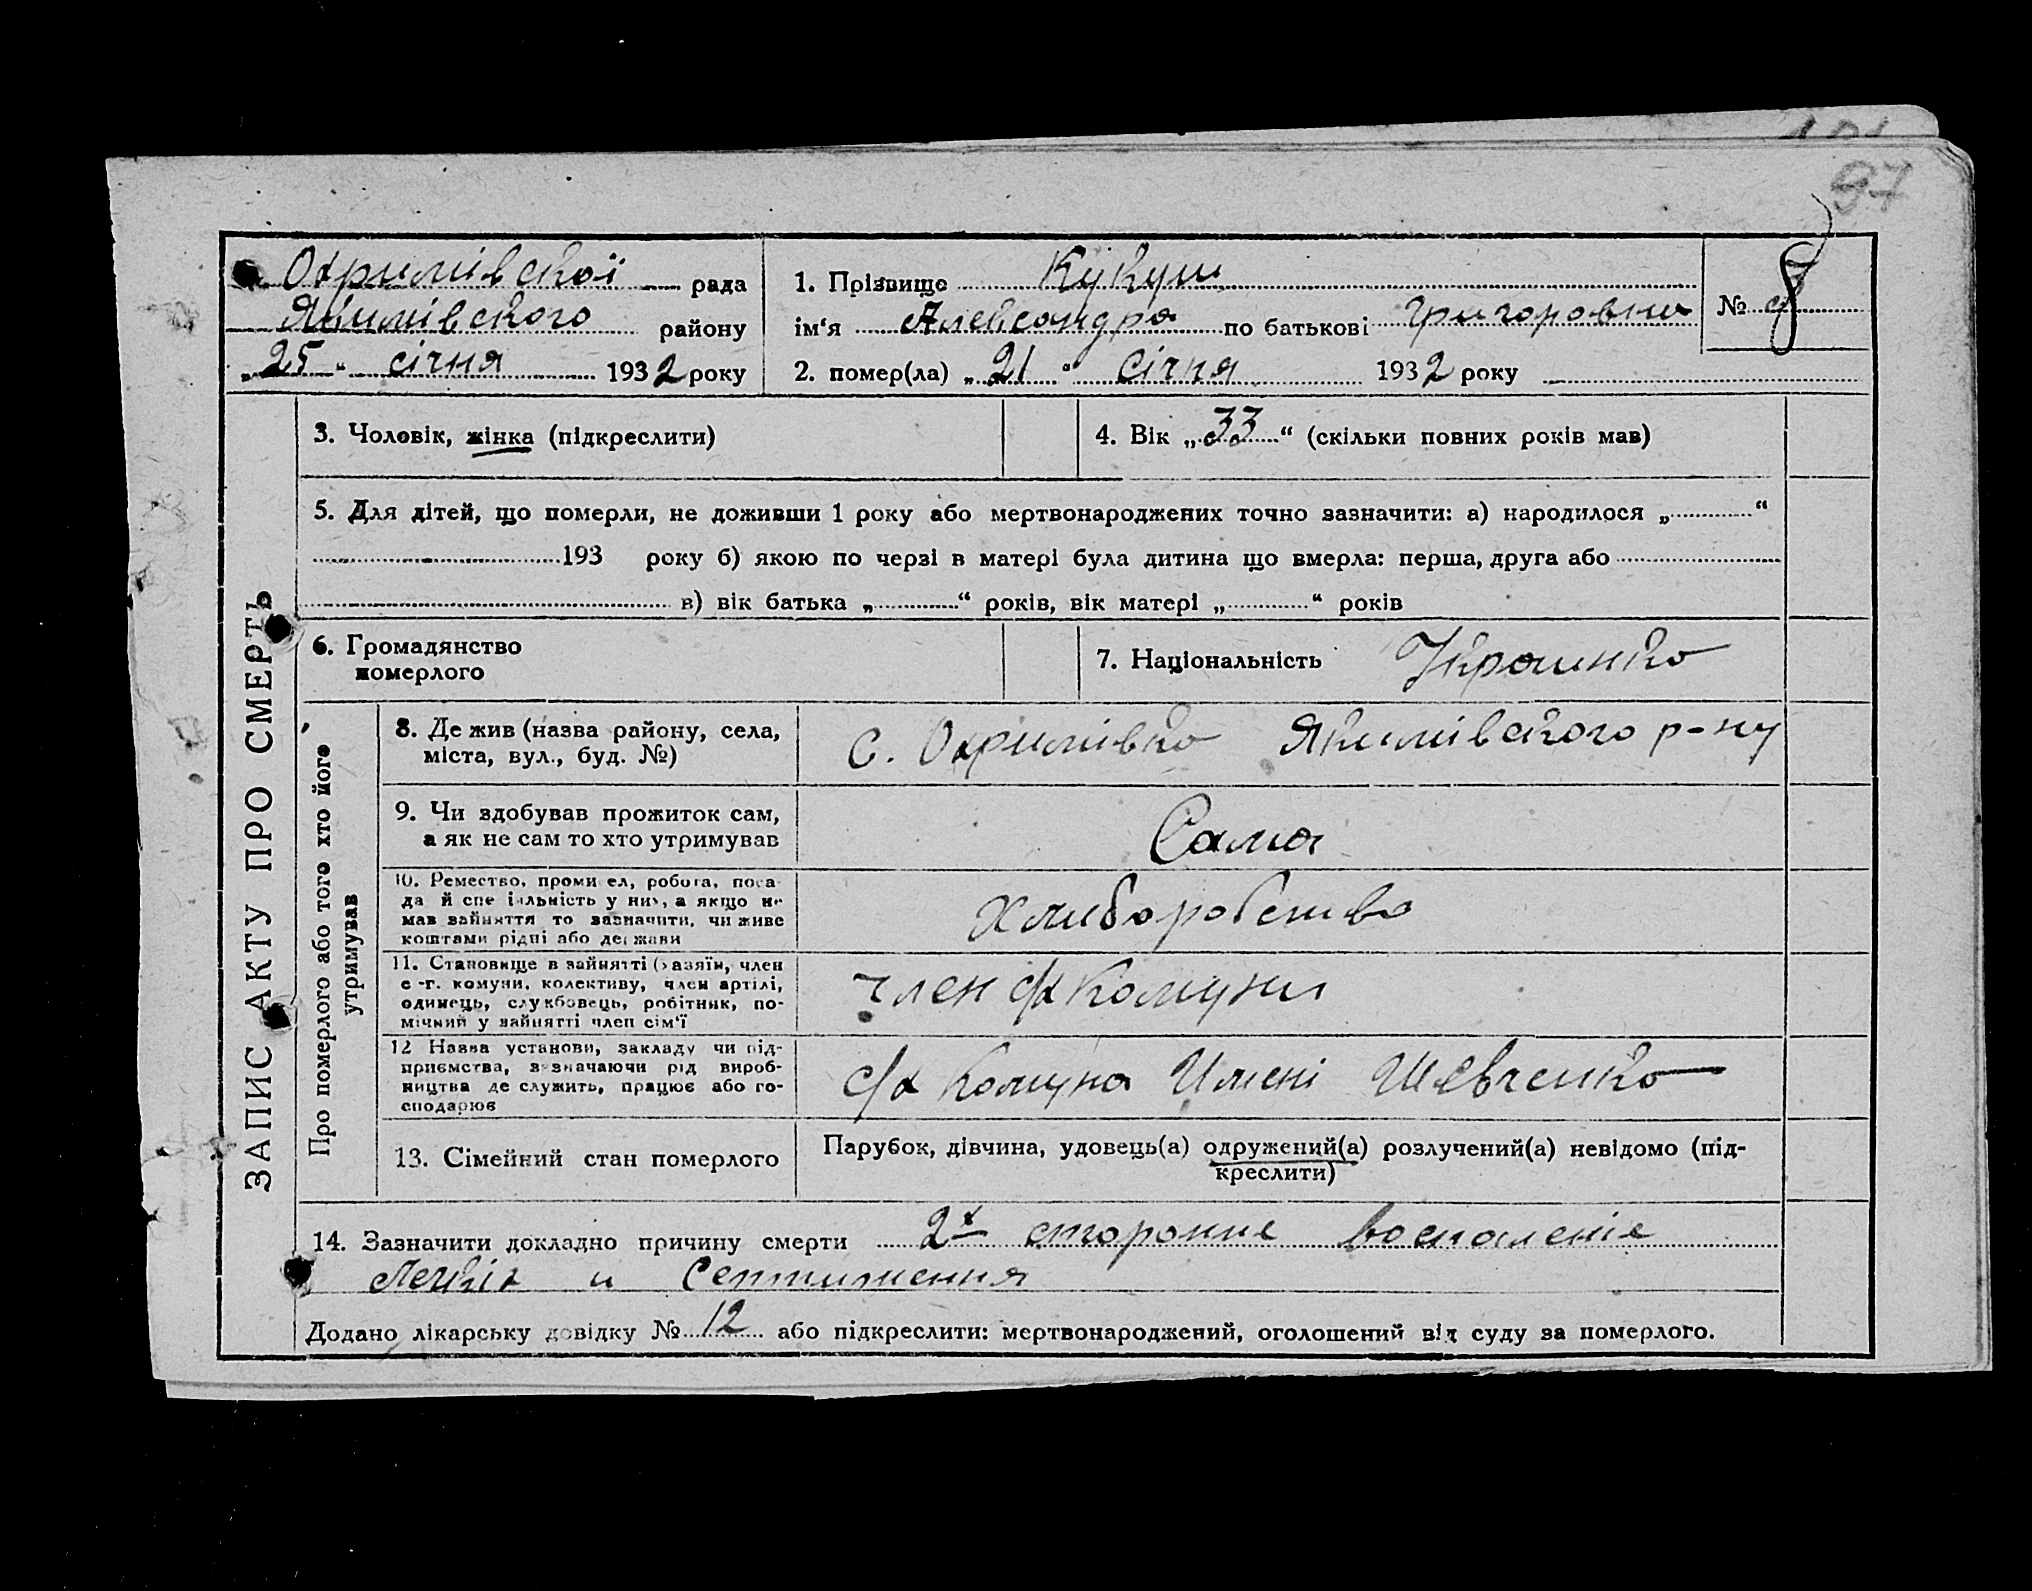 97
Охримівскої рада
Якимівского району
„25“ січня 1932 року
1. Прізвище Кукуш
ім‘я Александра по батькові Григоровна
2. помер(ла) „21“ Січня 1932 року
№ 8
ЗАПИС АКТУ ПРО СМЕРТЬ
3. Чоловік, жінка (підкреслити)
4. Вік „33“ (скільки повних років мав)
5. Для дітей, що померли, не доживши 1 року або мертвонароджених точно зазначити: а) народилося „ “
193 року б) якою по черзі в матері була дитина що вмерла: перша, друга або
в) вік батька „ “ років, вік матері „ “ років
6. Громадянство
померлого
7. Національність Украинка
Про померлого або того хто його
утримував
8. Де жив (назва району, села,
міста, вул., буд. №)
с. Охримівка Якимівского р-ну
9. Чи здобував прожиток сам,
а як не сам то хто утримував
Сама
10. Ремество, промисел, робота, поса-
да й спеціяльність у них, а якщо не
мав зайняття то зазначити, чи живе
коштами рідні або держави
Хлиборобство
11. Становище в зайнятті (хазяїн, член
с.-г. комуни, колективу, член артілі,
одинець, службовець, робітник, по-
мічний у зайнятті член сім‘ї
член с/х Комуни
12 Назва установи, закладу чи під-
приємства, взначаючи рід вироб-
ництва де служить, працює або го-
сподарює
с/х Комуна Имені Шевченко
13. Сімейний стан померлого
Парубок, дівчина, удовець(а) одружений(а) розлучений(а) невідомо (під-
креслити)
14. Зазначити докладно причину смерти 2х сторонне воспаленіе
Легкіх и
Додано лікарську довідку № 12 або підкреслити: мертвонароджений, оголошений від суду за померлого.